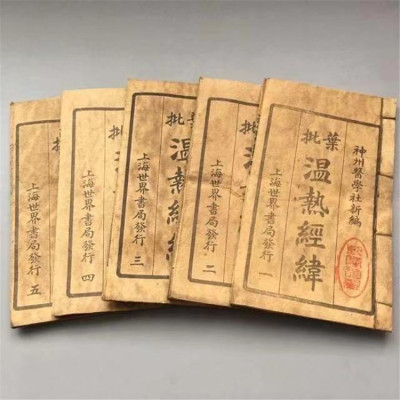 神州醫學社新編
葉批
溫熱經緯
上海世界書局發行 一
批
溫
上海世界書局發行 二
批
溫熱經緯
上海世界書局發行 三
批
上海世界書局發行 四
批
上海世界書局發行 五